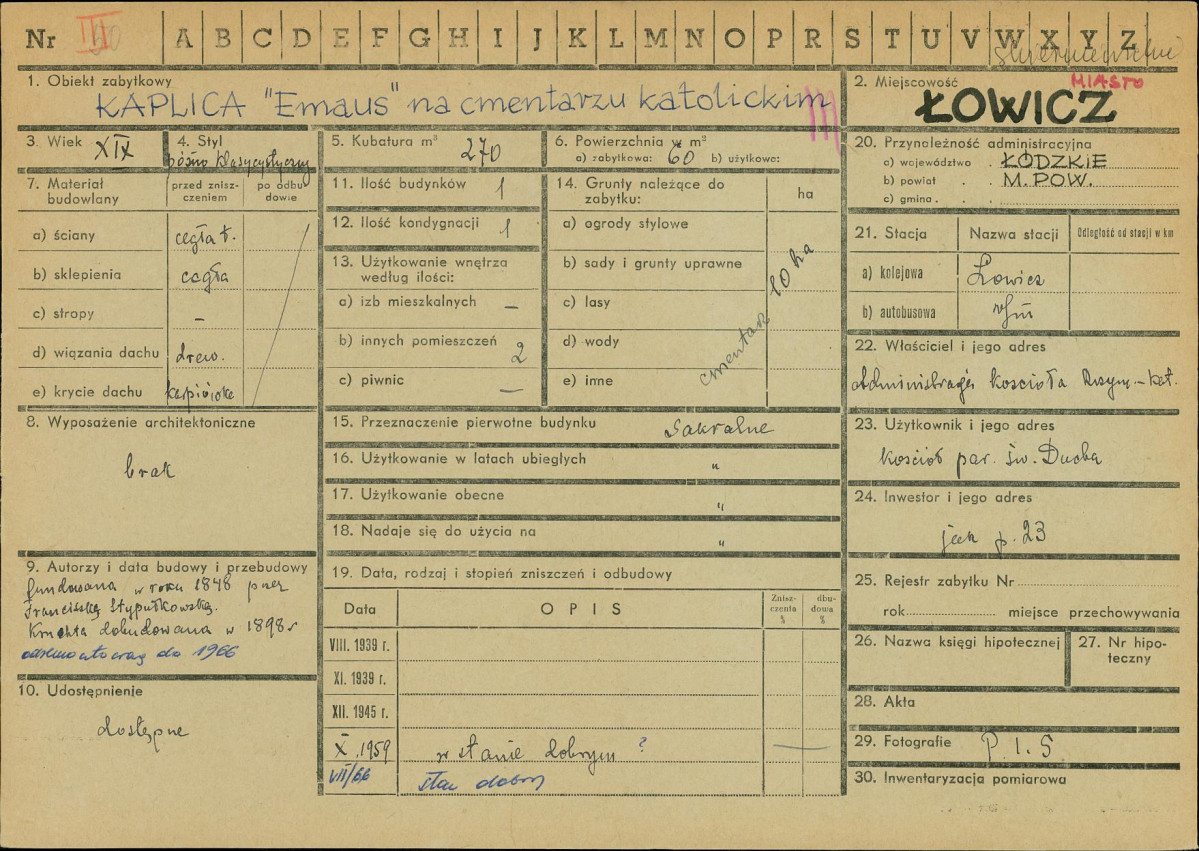 Nr III A B C D E F G H I J K L M N O P R S T U V W X Y Z
1. Obiekt zabytkowy
KAPLICA "Emaus" na cmentarzu katolickim
2. Miejscowość MIASTO
ŁOWICZ
3. Wiek XIX
4. Styl
późno klasycystyczny
5. Kubatura m³ 270
6. Powierzchnia w m²
a) zabytkowa: 60 b) użytkowe:
20. Przynależność administracyjna
a) województwo . ŁÓDZKIE
b) powiat . . M. POW.
c) gmina . .
7. Materiał budowlany
przed zniszczeniem
po odbudowie
a) ściany cegła t.
b) sklepienia cegła
c) stropy –
d) wiązania dachu drew.
e) krycie dachu karpiówka
11. Ilość budynków 1
12. Ilość kondygnacji 1
13. Użytkowanie wnętrza
według ilości:
a) izb mieszkalnych –
b) innych pomieszczeń 2
c) piwnic –
14. Grunty należące do
zabytku:
ha
a) ogrody stylowe
b) sady i grunty uprawne
c) lasy
d) wody
e) inne
cmentarz 10 ha
21. Stacja Nazwa stacji Odległość od stacji w km
a) kolejowa Łowicz
b) autobusowa
22. Właściciel i jego adres
Administracja kościoła Rzym.-kat.
23. Użytkownik i jego adres
kościół par. św. Ducha
24. Inwestor i jego adres
jak p. 23
8. Wyposażenie architektoniczne
brak
15. Przeznaczenie pierwotne budynku Sakralne
16. Użytkowanie w latach ubiegłych "
17. Użytkowanie obecne "
18. Nadaje się do użycia na "
9. Autorzy i data budowy i przebudowy
fundowana w roku 1848 przez
Franciszkę Stypułkowską.
Kruchta dobudowana w 1898 r
do 1966
10. Udostępnienie
dostępne
19. Data, rodzaj i stopień zniszczeń i odbudowy
Data OPIS Zniszczenia % dbudowa %
VIII. 1939 r.
XI. 1939 r.
XII. 1945 r.
X .1959 w stanie dobrym ? –
VII/66 stan dobry
25. Rejestr zabytku Nr
rok miejsce przechowywania
26. Nazwa księgi hipotecznej
27. Nr hipoteczny
28. Akta
29. Fotografie P. I. S.
30. Inwentaryzacja pomiarowa